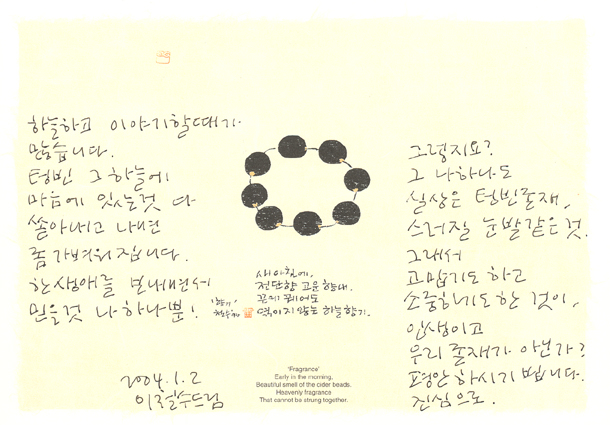 하늘하고 이야기할때가
많습니다.
텅빈 그 하늘에
마음에 있는것 다
쏟아내고 나면
좀 가벼워집니다.
한생애를 보내면서
믿을것 나 하나뿐!
2004.1.2
이철수드림
새아침에,
전단향 고운 향내.
꼰에 꿰어도
엮이지 않는 하늘향기.
'향기'
철수
'Fragrance'
Early in the morning,
Beautiful smell of the cider beads.
Heavenly fragrance
That cannot be strung together.
그렇지요?
그 나하나도
실상은 텅빈존재,
스러질 눈발같은것.
그래서
고맙기도 하고
소중하기도한 것이,
인생이고
우리 존재가 아닌가?
평안하시기 빕니다.
진심으로.